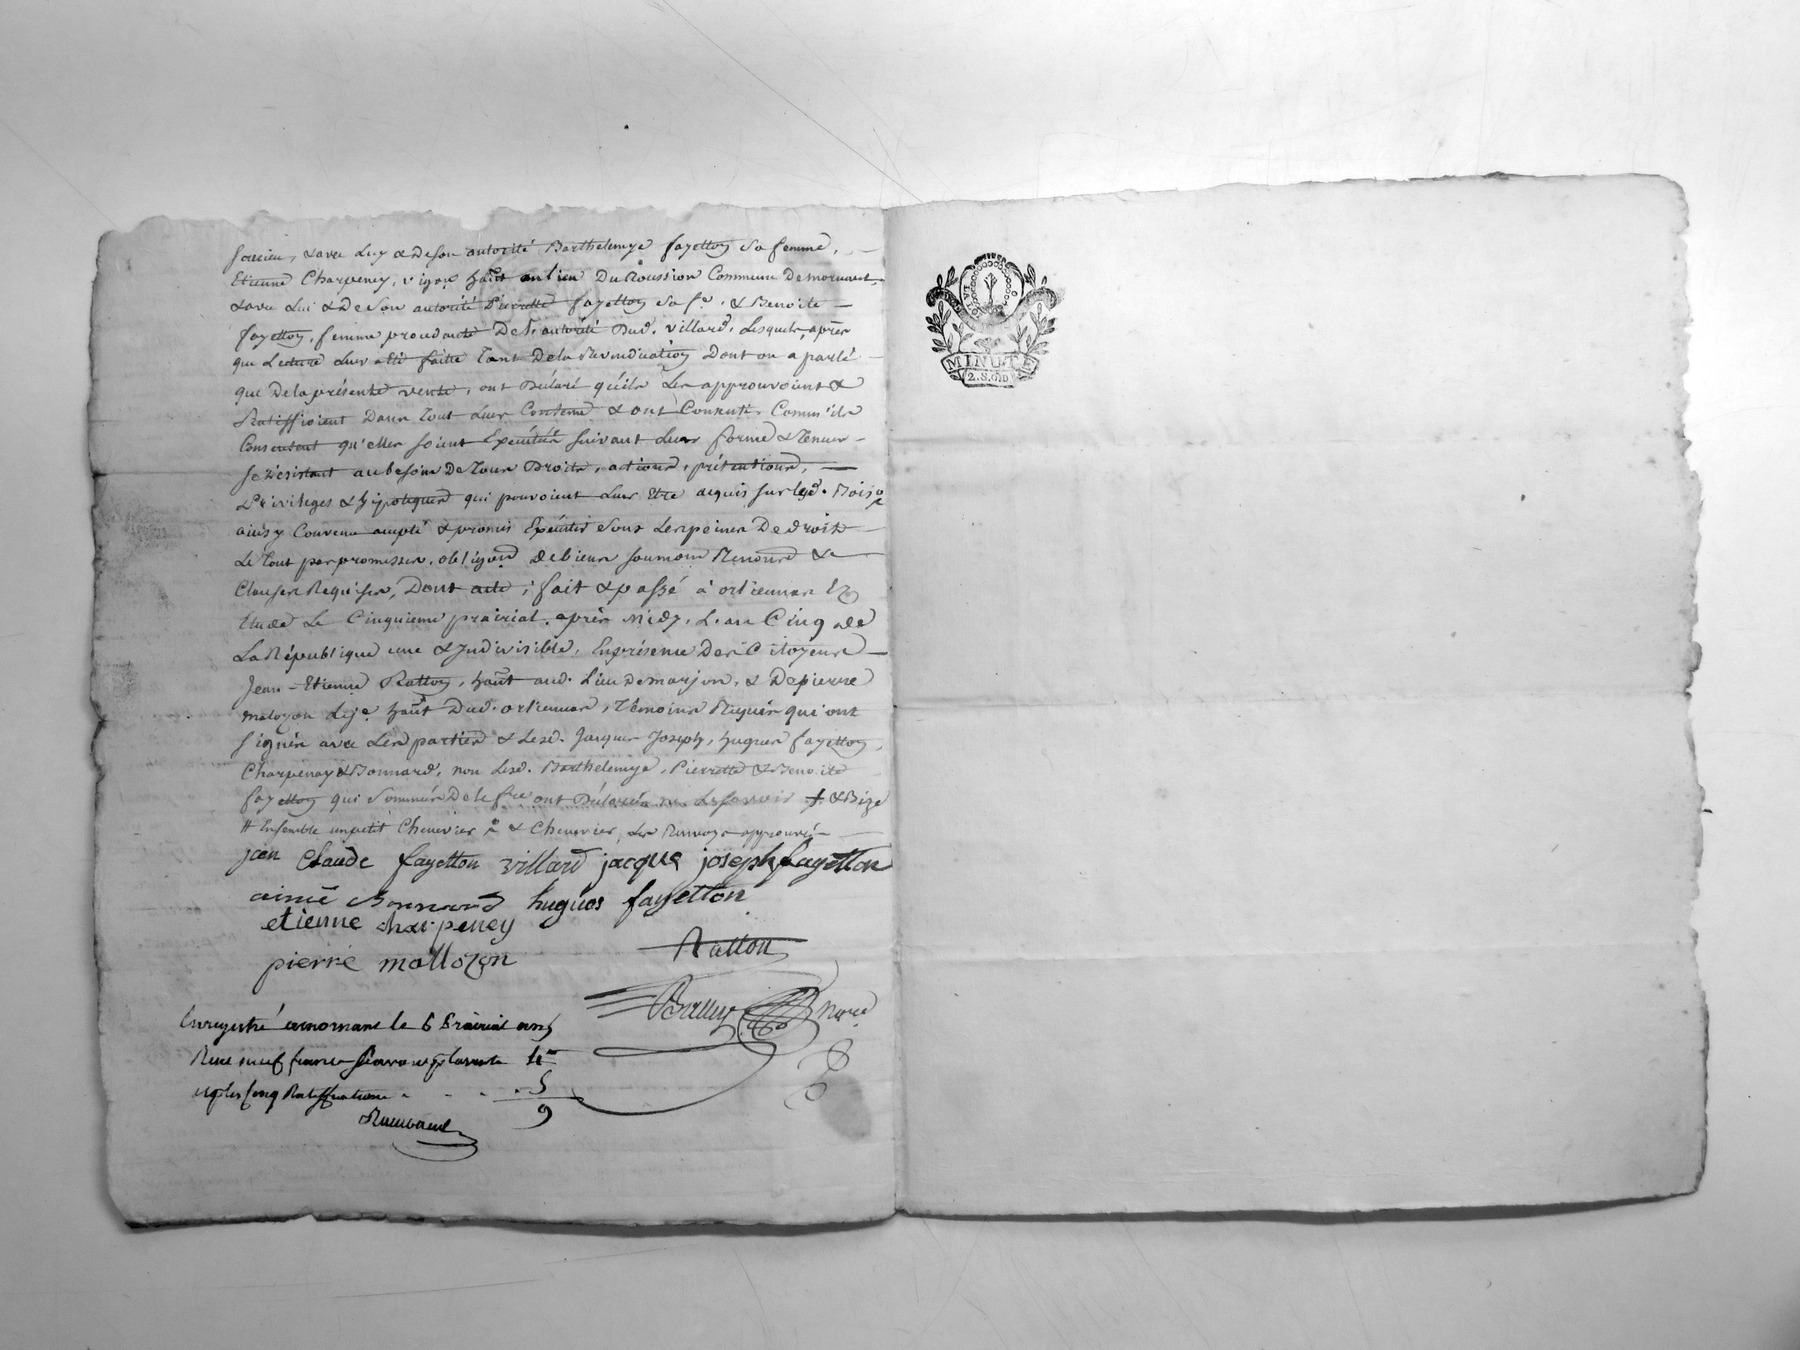 & avec Luy & De son autorité Barthelemye fayetton sa femme,
Etienne Charpeney, vigon hãnt au lieu Du Roussion Commune De mornant
& avec Lui & De Son autorité Pierrette fayetton sa fe. & Benoite
fayetton, femme procedante De L'autorité Dud. villard, Lesquels, après
que Lecture Leur a Eté faitte Tant De la Revendication Dont on a parlé
que De la présente vente, ont Déclaré qu'ils Les approuvoient &
Ratiffioient Dans Tout Leur Contenu & ont Consenti Comm'ils
Consentent qu'elles soient Exécutées suivant Leur forme & Teneur
se Désistant au besoin De Tous Droits, actions, prétentions,
Privileges & hipoteques qui pouvoient Leur Etre acquis sur led. Bois
ainsy Convenu accepté & promis Exécuter Sous Les peines De droit
Le Tout par promesses, obligons de biens soumons Renons &
Clauses Requises, Dont acte ; fait & passé à orlienas En
Etude Le Cinquieme prairial, après Midy, L'an Cinq de
La République une & Indivisible, En présence Des Citoyens
Jean-Etienne Ratton, hãnt aud. Lieu De marjon, & De pierre
malozon hãnt Dud. orlienas, Témoins Requis qui ont
signés avec Les parties & Lesd. Jacques Joseph, hugues fayetton,
Charpenay & Bonnard, non Lesd. Barthelemye, Pierrette & Benoite
fayetton qui Sommés De le fre ont Déclarés ne Le savoir ‡ & Bize
# Ensemble un petit Chenevier & Chenevier, Les Renvoys approuvés
jean Claude fayetton villard jacque joseph fayetton
aimé Bonnard hugues fayetton
etienne charpeney
Ratton
pierre mallozon
Nore
Enregistré a mornant le 6 Prairial an 5
Reçu neuf francs Sçavoir pr la vente 4
pr les Cinq Ratiffications . . . 5
9
MINUTE
2.S.6.D